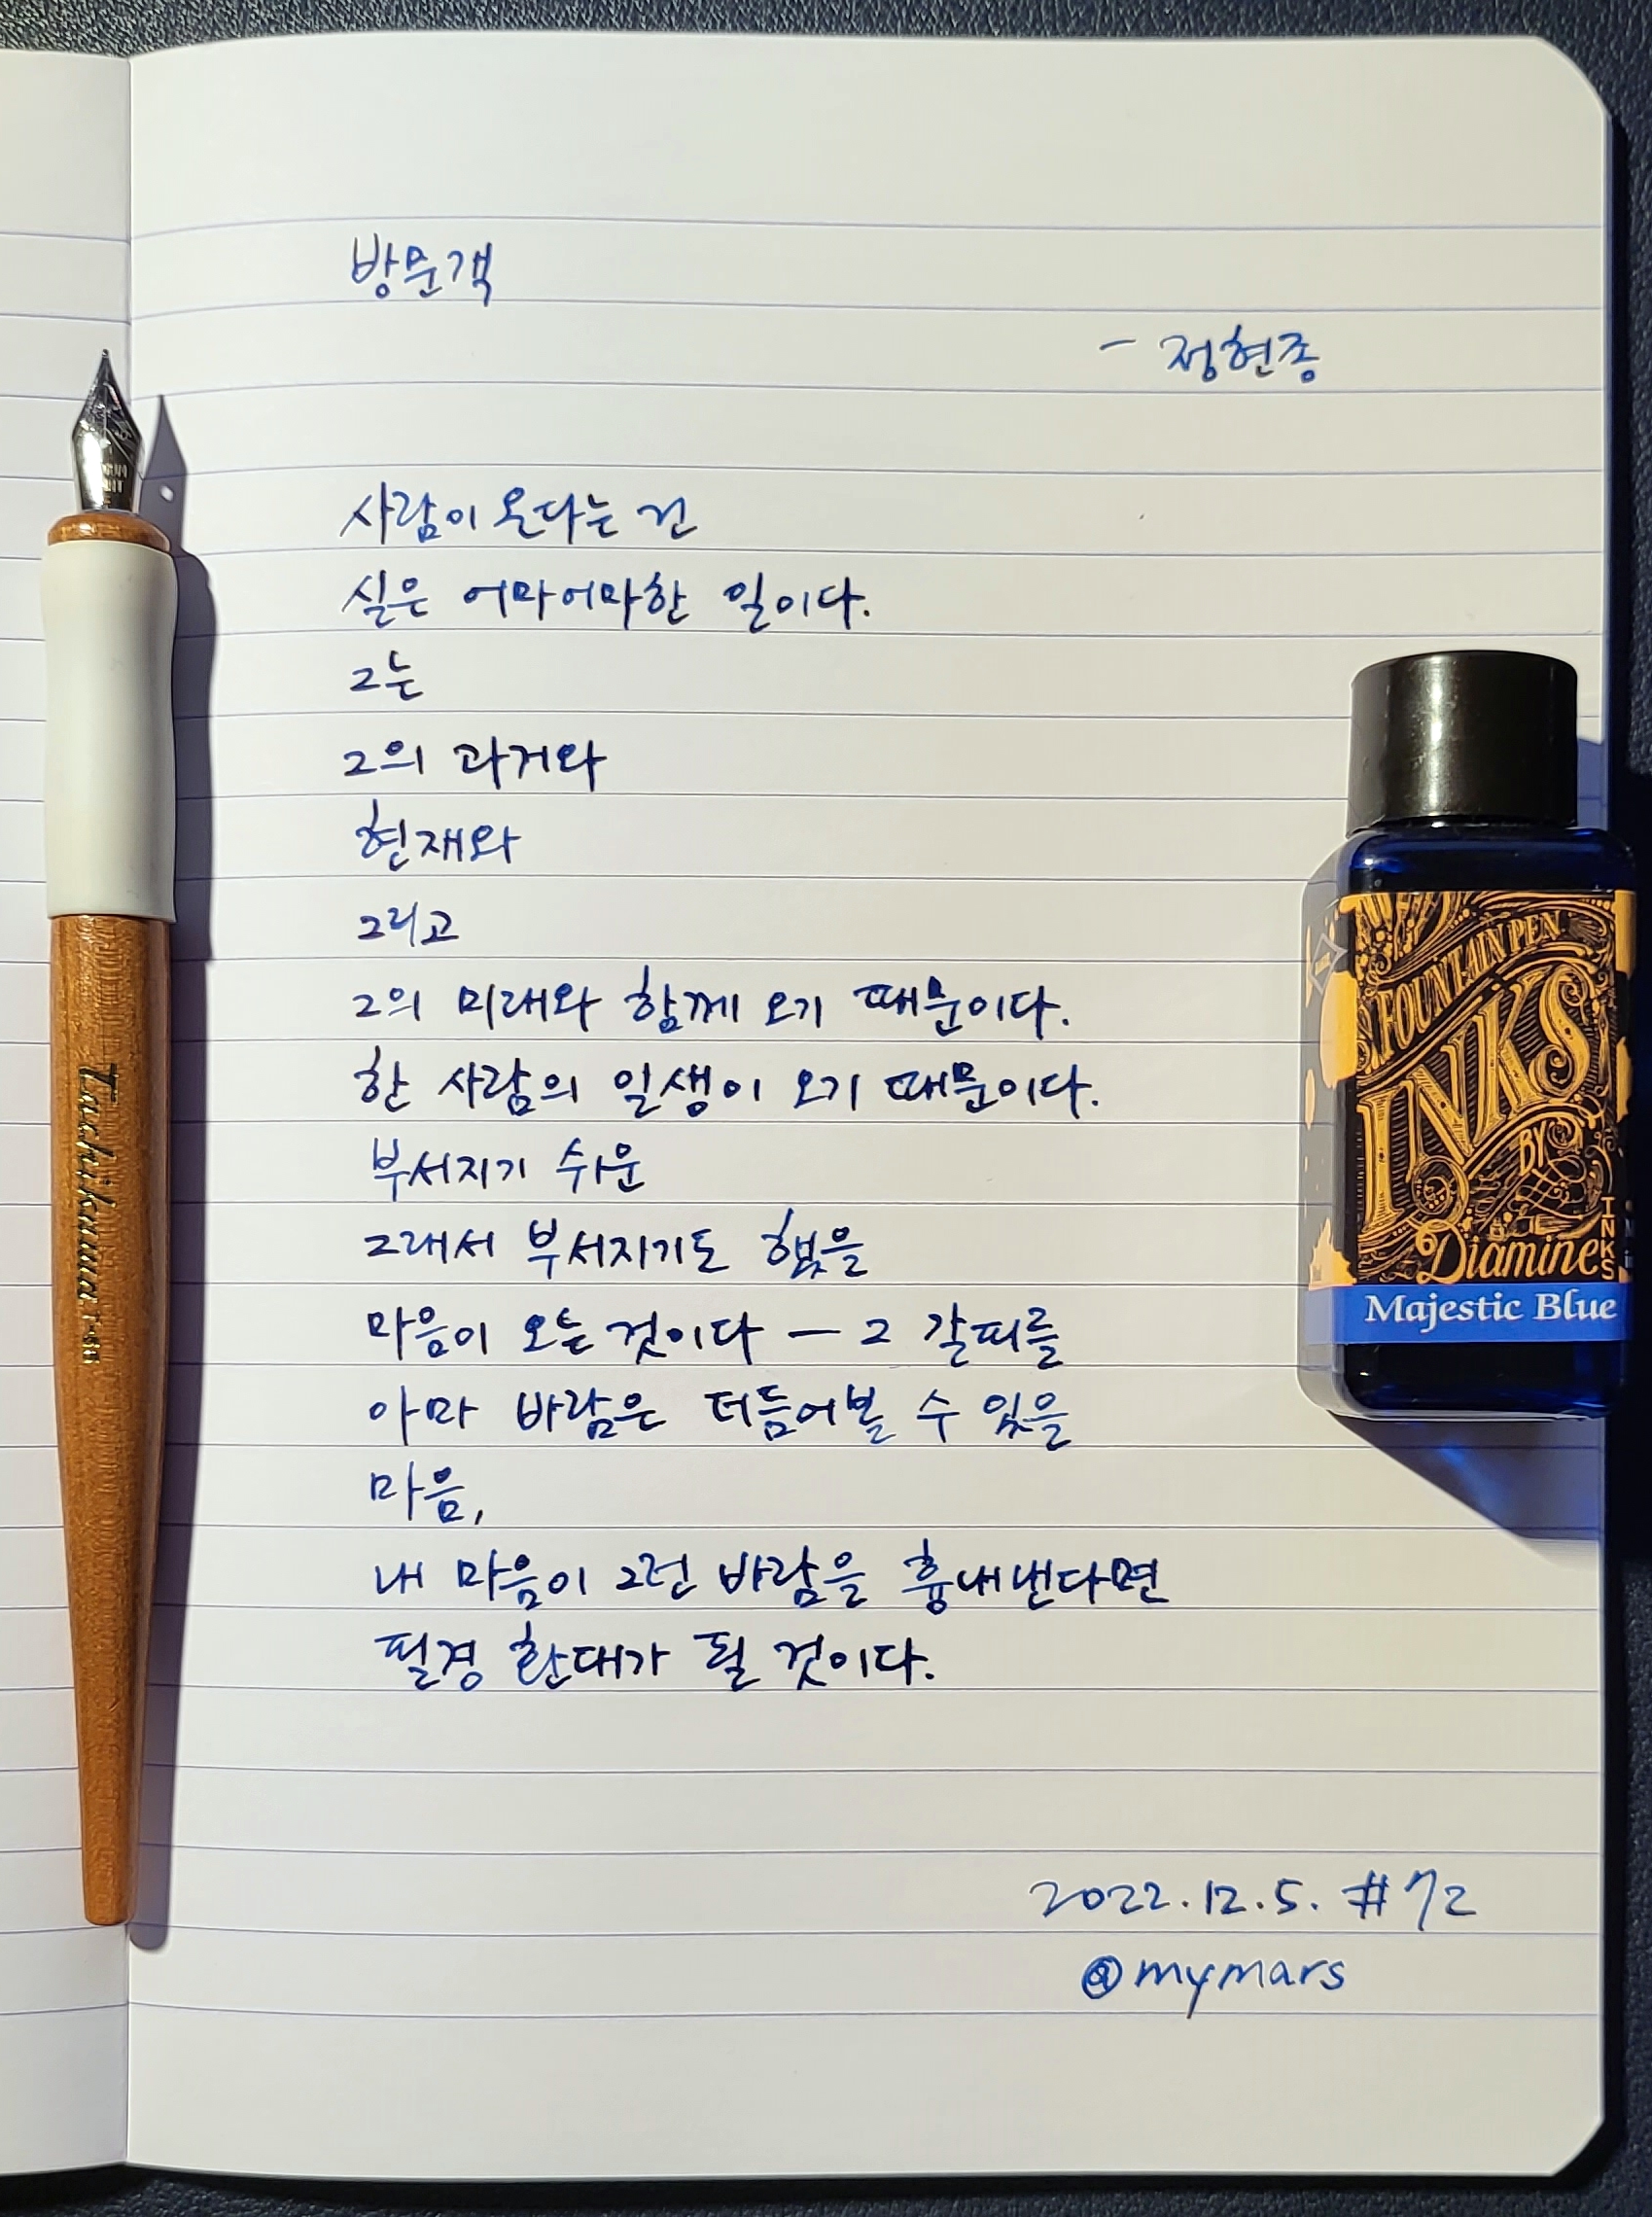 방문객
- 정현종
사람이 온다는 건
실은 어마어마한 일이다.
그는
그의 과거와
현재와
그리고
그의 미래와 함께 오기 때문이다.
한 사람의 일생이 오기 때문이다.
부서지기 쉬운
그래서 부서지기도 했을
마음이 오는 것이다 — 그 갈피를
아마 바람은 더듬어볼 수 있을
마음,
내 마음이 그런 바람을 흉내낸다면
필경 환대가 될 것이다.
2022.12.5. #72
@mymars
Tachikawa
FOUNTAIN PEN
INKS
BY
Diamine
INKS
Majestic Blue